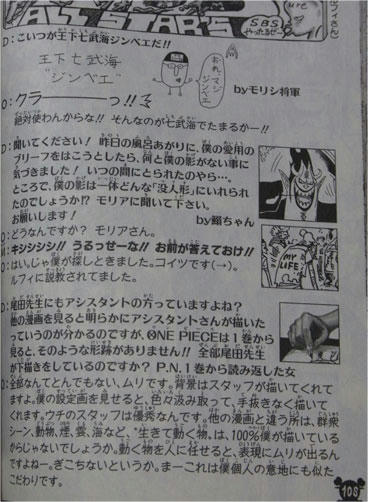 ALL STARS
SBS
やったるぜー
D：こいつが王下七武海ジンベエだ!!
王下七武海
"ジンベエ"
おれ、マジ
ジンベエ
byモリシ将軍
O：クラーーーーっ!!
絶対使わんからな!! そんなのが七武海でたまるかー!!
D：聞いてください! 昨日の風呂あがりに、僕の愛用の
ブリーフをはこうとしたら、何と僕の影がない事に
気づきました! いつの間にとられたのやら…。
ところで、僕の影は一体どんな"没人形"にいれられ
たのでしょうか!? モリアに聞いて下さい。
お願いします! by鰯ちゃん
O：どうなんですか? モリアさん。
M：キシシシシ!! うるっせーな!! お前が答えておけ!!
O：はい。じゃ僕が探しときました。コイツです(→)。
ルフィに説教されてました。
MY
LIFE
D：尾田先生にもアシスタントの方っていますよね?
他の漫画を見ると明らかにアシスタントさんが描いた
っていうのが分かるのですが、ONE PIECEは1巻から
見ると、そのような形跡がありません!! 全部尾田先生
が下描きをしているのですか? P.N.1巻から読み返した女
O：全部なんてとんでもない、ムリです。背景はスタッフが描いてくれて
ますよ。僕の設定画を見せると、色々汲み取って、手抜きなく描いて
くれます。ウチのスタッフは優秀なんです。他の漫画と違う所は、群衆
シーン、動物、煙、雲、海など、"生きて動く物"は、100%僕が描いている
からじゃないでしょうか。動く物を人に任せると、表現にムリが出るん
ですよねー。ぎこちないというか。まーこれは僕個人の意地にも似た
こだわりです。
108